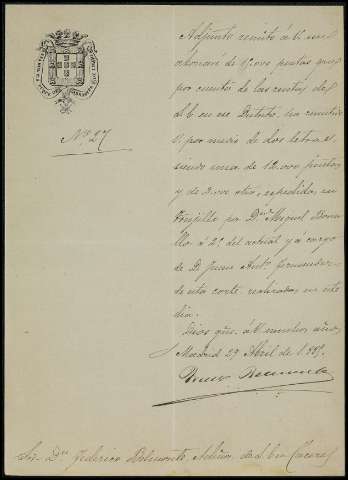 Nº 27
Adjunto remito á V. un
abonaré de 15.000 pesetas que
por cuenta de las rentas de
S. E. en ese Distrito, ha remitido
V. por medio de dos letras,
siendo una de 12.000 pesetas
y de 3.000 otra, expedidas, en
Trujillo por Dn. Miguel
á 2 del actual y á cargo
de D. Juan Antº Fernandez
de esta corte realizadas en este
dia.
Dios gue. á V. muchos años.
Madrid 29 Abril de 1.889.
Sor. Dn. Federico Belmonte, Admor. de S. E. en Caceres